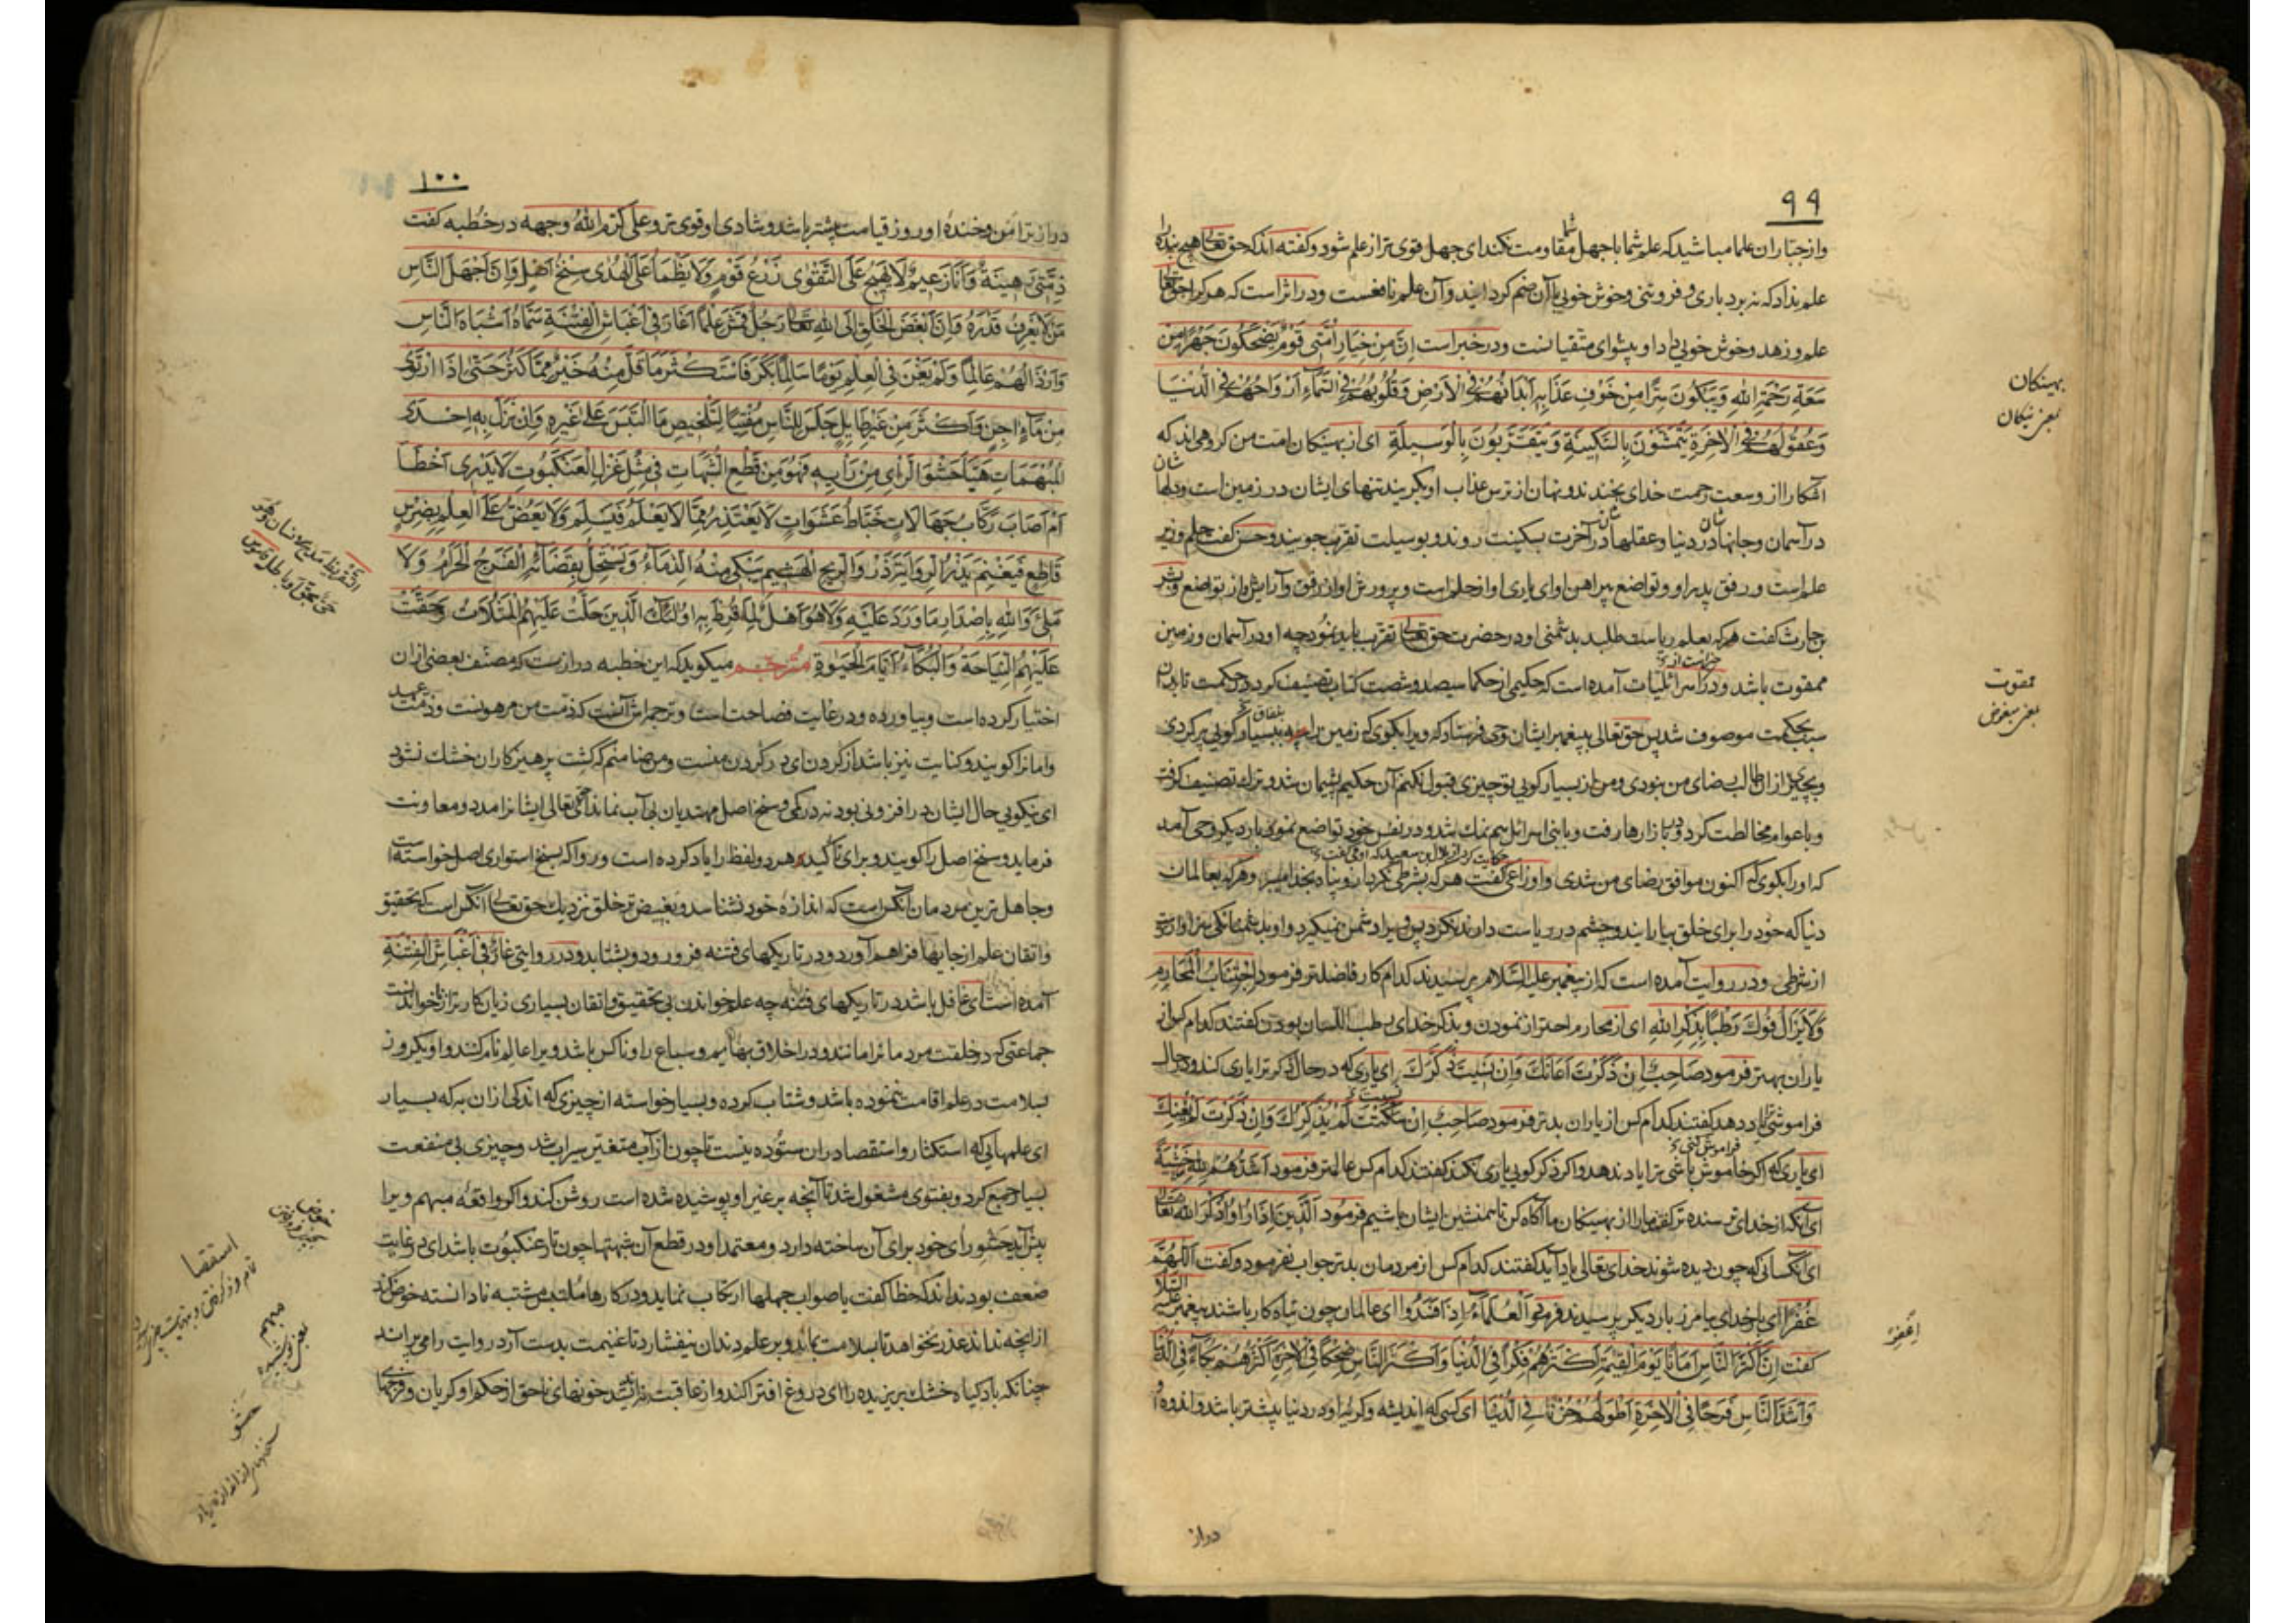 ۹۹
وازجباران علما مباشیدکه علم شما باجهل شما مقاومت نکند ای جهل قوی تر از علم شود وکفته اندکه حق تعالی هیچ بنده را
علم نداد که نه بردباری وفروتنی وخوش خویی باآن ضم کردانید وآن علم نافعست ودر اثر است که هرکرا حق تعالی
علم وزهد وخوش خویی داد او پیشوای متقیانست ودر خبر است اِنَّ مِنْ خِیَارِ اُمَّتِی قَوْمٌ یَضْحَکُونَ جَهْرًا مِنْ
سَعَةِ رَحْمَةِ اللهِ وَیَبْکُونَ سِرًّا مِنْ خَوْفِ عَذَابِهِ اَبْدَانُهُمْ فِی الْاَرْضِ وَقُلُوبُهُمْ فِی السَّمَآءِ اَرْوَاحُهُمْ فِی الدُّنْیَا
وَعُقُولُهُمْ فِی الْآخِرَةِ یَتَمَشَّوْنَ بِالسَّکِینَةِ وَیَتَقَرَّبُونَ بِالْوَسِیلَةِ ای از بهینکان امت من کروهی اند که
آشکارا از وسعت رحمت خدای بخندند ونهان از ترس عذاب او بکریند تنهای ایشان در زمین است ودلهاشان
در آسمان وجانهاشان در دنیا وعقلهاشان در آخرت بسکینت روند وبوسیلت تقرب جویند وحسن کفت حلم وزیر
علم است ورفق پدر او وتواضع پیراهن او ای یاری او از حلم است وپرورش او از رفق وآرایش او از تواضع وبشر
بن حارث کفت هرکه بعلم ریاست طلبد بدشمنی او در حضرت حق تعالی تقرب باید نمود چه او در آسمان وزمین
ممقوت باشد ودر اسرائلیات آمده است که حکیمی از حکما سیصد وشصت کتاب تصنیف کرد در حکمت تا بدان
سبب بحکمت موصوف شد پس حق تعالی بپیغمبر ایشان وحی فرستاد که ویرا بکوی که زمین را ببسیار کویی پر کردی
وبچیزی از آن طالب رضای من نبودی ومن از بسیار کویی تو چیزی قبول نکنم آن حکیم پشیمان شد وترک تصنیف کرفت
وباعوام مخالطت کرد ودر بازارها رفت وبابنی اسرائل هم نمک شد ودر نفس خود تواضع نمود بار دیکر وحی آمد
که او را بکوی که اکنون موافق رضای من شدی واوزاعی کفت هرکه بشرطی نکرد از وپناه بخدا میبرد وهرکه بعالمان
دنیا که خود را برای خلق بیارایند وچشم در ریاست دارند نکرد پس ویرا دشمن نمیکیرد واو بدشمنانکی سزاوارتر
از شرطی ودر روایت آمده است که از پیغمبر علیه السلام پرسیدند کدام کار فاضلتر فرمود اِجْتِنَابُ الْمَحَارِمِ
وَلَا یَزَالُ فُوكَ رَطْبًا بِذِکْرِ اللهِ ای از محارم احتراز نمودن وبذکر خدای رطب اللسان بودن کفتند کدام کس از
یاران بهتر فرمود صَاحِبٌ اِنْ ذَکَرْتَ اَعَانَكَ وَاِنْ نَسِیتَ ذَکَّرَكَ ای یاری که در حال ذکر ترا یاری کند ودر حال
فراموشی یاد دهد کفتند کدام کس از یاران بدتر فرمود صَاحِبٌ اِنْ سَکَتَّ لَمْ یُذَکِّرْكَ وَاِنْ ذَکَرْتَ لَمْ یُعِنْكَ
ای یاری که اکر خاموش باشی ترا یاد ندهد واکر ذکر کویی یاری نکند کفتند کدام کس عالمتر فرمود اَشَدُّهُمْ لِلّٰهِ خَشْیَةً
ای آنکه از خدای ترسنده تر کفتند ما را از بهینکان ما آکاه کن تا همنشین ایشان باشیم فرمود اَلَّذِینَ اِذَا رُاُوا ذُکِرَ اللهُ تعالی
ای آنکسانی که چون دیده شوند خدای تعالی یاد آید کفتند کدام کس از مردمان بدتر جواب نفرمود وکفت اَللّٰهُمَّ
غُفْرًا ای بار خدای بیامرز بار دیکر پرسیدند فرمود اَلْعُلَمَآءُ اِذَا فَسَدُوا ای عالمان چون تباه کار باشند پیغمبر علیه السلام
کفت اِنَّ اَکْثَرَ النَّاسِ اَمَانًا یَوْمَ الْقِیٰمَةِ اَکْثَرُهُمْ فِکْرًا فِی الدُّنْیَا وَاَکْثَرَ النَّاسِ ضِحْکًا فِی الْآخِرَةِ اَکْثَرُهُمْ بُکَآءً فِی الدُّنْیَا
وَاَشَدَّ النَّاسِ فَرَحًا فِی الْآخِرَةِ اَطْوَلُهُمْ حُزْنًا فِی الدُّنْیَا ای کسی که اندیشه وکریهٔ او در دنیا بیشتر باشد واندوه او
دراز
بهینکان
یعنی نیکان
ممقوت
یعنی مبغوض
اِغْفِرْ
۱۰۰
دراز تر امن وخندهٔ او روز قیامت بیشتر باشد وشادی او قوی تر وعلی کرم الله وجهه در خطبه کفت
ذِمَّتِی رَهِینَةٌ وَاَنَا زَعِیمٌ لَا یَهِیجُ عَلَی التَّقْوٰی زَرْعُ قَوْمٍ وَلَا یَظْمَاُ عَلَی الْهُدٰی سِنْخُ اَصْلٍ وَاِنَّ اَجْهَلَ النَّاسِ
مَنْ لَا یَعْرِفُ قَدْرَهُ وَاِنَّ اَبْغَضَ الْخَلْقِ اِلَی اللهِ تَعَالٰی رَجُلٌ قَمَشَ عِلْمًا اَغَارَ فِی اَغْبَاشِ الْفِتْنَةِ سَمَّاهُ اَشْبَاهُ النَّاسِ
وَاَرْذَالُهُمْ عَالِمًا وَلَمْ یَغْنَ فِی الْعِلْمِ یَوْمًا سَالِمًا بَکَّرَ فَاسْتَکْثَرَ مَا قَلَّ مِنْهُ خَیْرٌ مِمَّا کَثُرَ حَتّٰی اِذَا ارْتَوٰی
مِنْ مَآءٍ اٰجِنٍ وَاَکْثَرَ مِنْ غَیْرِ طَایِلٍ جَلَسَ لِلنَّاسِ مُفْتِیًا لِتَلْخِیصِ مَا الْتَبَسَ عَلٰی غَیْرِهِ وَاِنْ نَزَلَ بِهِ اِحْدَی
الْمُبْهَمَاتِ هَیَّأَ حَشْوَ الرَّاْیِ مِنْ رَاْیِهِ فَهُوَ مِنْ قَطْعِ الشُّبُهَاتِ فِی مِثْلِ غَزْلِ الْعَنْکَبُوتِ لَا یَدْرِی اَخْطَأَ
اَمْ اَصَابَ رَکَّابُ جَهَالَاتٍ خَبَّاطُ عَشَوَاتٍ لَا یَعْتَذِرُ مِمَّا لَا یَعْلَمُ فَیَسْلَمَ وَلَا یَعَضُّ عَلَی الْعِلْمِ بِضِرْسٍ
قَاطِعٍ فَیَغْنَمَ یَذْرُ الرِّوَایَةَ ذَرْوَ الرِّیحِ الْهَشِیمَ یَبْکِی مِنْهُ الدِّمَآءُ وَیَسْتَحِلُّ بِقَضَآئِهِ الْفَرْجُ الْحَرَامُ وَلَا
مَلِیٌّ وَاللهِ بِاِصْدَارِ مَا وَرَدَ عَلَیْهِ وَلَا هُوَ اَهْلٌ لِمَا قُرِّظَ بِهِ اُولٰئِكَ الَّذِینَ حَلَّتْ عَلَیْهِمُ الْمَثُلَاتُ وَحَقَّتْ
عَلَیْهِمُ النِّیَاحَةُ وَالْبُکَآءُ اَیَّامَ الْحَیٰوةِ مُتَرْجِم میکوید که این خطبه دراز ست که مصنف بعضی از آن
اختیار کرده است وبیاورده ودر غایت فصاحت است وترجمه اش آنست که ذمت من مرهونست وذمت عهد
وامانرا کویند وکنایت نیز باشد از کردن ای در کردن منست ومن ضامنم که کشت پرهیزکاران خشک نشود
ای نیکویی حال ایشان در افزونی بود نه در کمی وسنخ اصل مهتدیان بی آب نماند حق تعالی ایشانرا مدد ومعاونت
فرماید وسنخ اصل را کویند وبرای تاکید هر دو لفظ را یاد کرده است وروا که بسنخ استواری اصل خواسته است
وجاهل ترین مردمان آنکس است که اندازهٔ خود نشناسد وبغیض تر خلق نزدیک حق تعالی آنکس است که بی تحقیق
واتقان علم از جایها فراهم آورد ودر تاریکهای فتنه فرو رود وبشتابد ودر روایتی غَارٌّ فِی اَغْبَاشِ الْفِتْنَةِ
آمده است ای غافل باشد در تاریکهای فتنه چه علم خواندن بی تحقیق واتقان بسیاری زیان کارتر از ناخواندنست
جماعتی که در خلقت مردمانرا مانند ودر اخلاق بهایم وسباع را وناکس باشد ویرا عالم نام کنند واو یکروز
بسلامت در علم اقامت ننموده باشد وشتاب کرده وبسیار خواسته از چیزی که اندکی از آن به که بسیار
ای علمهایی که استکثار واستقصا در آن ستوده نیست تا چون از آب متغیر سیراب شد وچیزی بی منفعت
بسیار جمع کرد وبفتوی مشغول شد تا آنچه بر غیر او پوشیده شده است روشن کند واکر واقعهٔ مبهم ویرا
پیش آید حشو رای خود برای آن ساخته دارد ومعتمد او در قطع آن شبهتها چون تار عنکبوت باشد ای در غایت
ضعف بود نداند که خطا کفت یا صواب جهلها ارتکاب نماید ودر کارها ملتبس مشتبه نادانسته خوض کند
از آنچه نداند عذر نخواهد تا بسلامت بماند وبر علم دندان نیفشارد تا غنیمت بدست آرد روایت را می پراند
چنانکه باد کیاه خشک بریزیده را ای دروغ افترا کند واز عاقبت نیندیشد خونهای ناحق از حکم او کریان وفرجها
التَّقْرِیظُ مَدْحُ الْاِنْسَانِ وَهُوَ حَیٌّ بِحَقٍّ اَوْ بَاطِلٍ قاموس
استقصا
مبهم
یعنی پوشیده
حشو